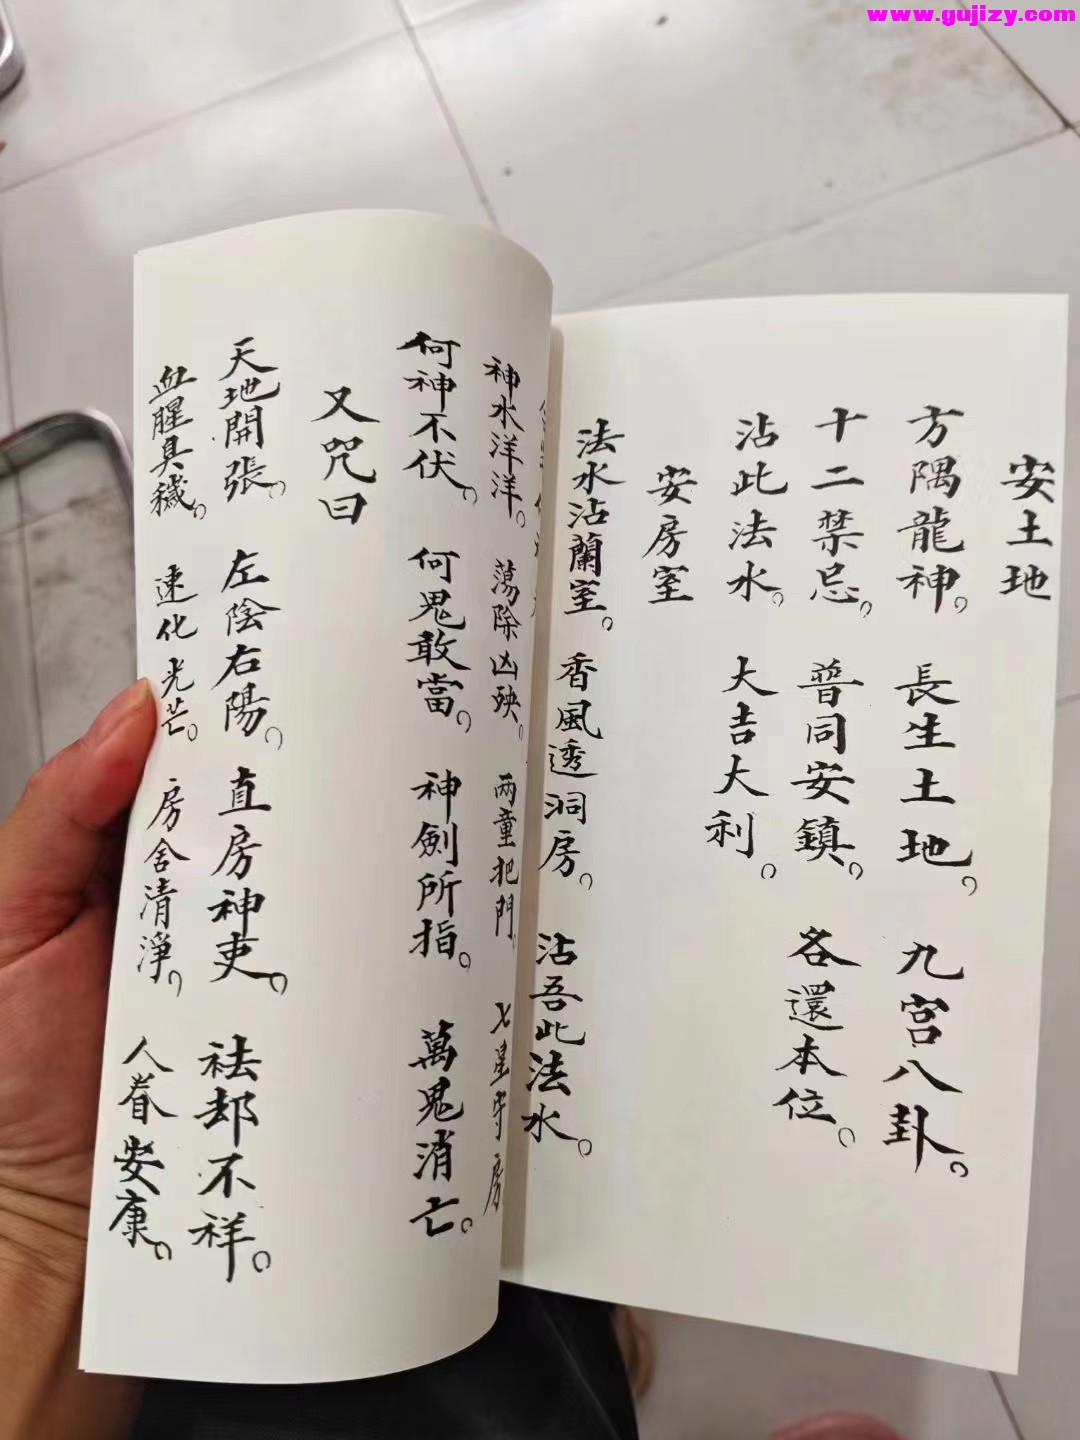 www.gujizy.com
安土地
方隅龍神。長生土地。九宮八卦。
十二禁忌。普同安鎮。各還本位。
沾此法水。大吉大利。
安房室
法水沾蘭室。香風透洞房。沾吾此法水。
神水洋洋。蕩除凶殃。兩童把門。七星守房
何神不伏。何鬼敢當。神劍所指。萬鬼消亡。
又咒曰
天地開張。左陰右陽。直房神吏。祛却不祥。
血腥臭穢。速化光芒。房舍清淨。人眷安康。